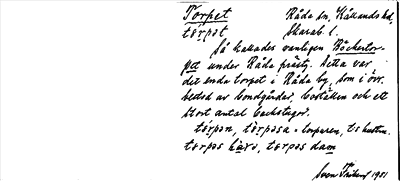 Torpet Råda sn, Kållands hd,
torpət Skarab. l.
Så kallades vanligen Böckertor-
pet under Råda prästg. Detta var
det enda torpet i Råda by, som i övr.
bestod av bondgårdar, boställen och ett
stort antal backstugor.
torpən, torpəsa = torparen, ts hustru.
torpəs , torpəs dam
Sven 1951